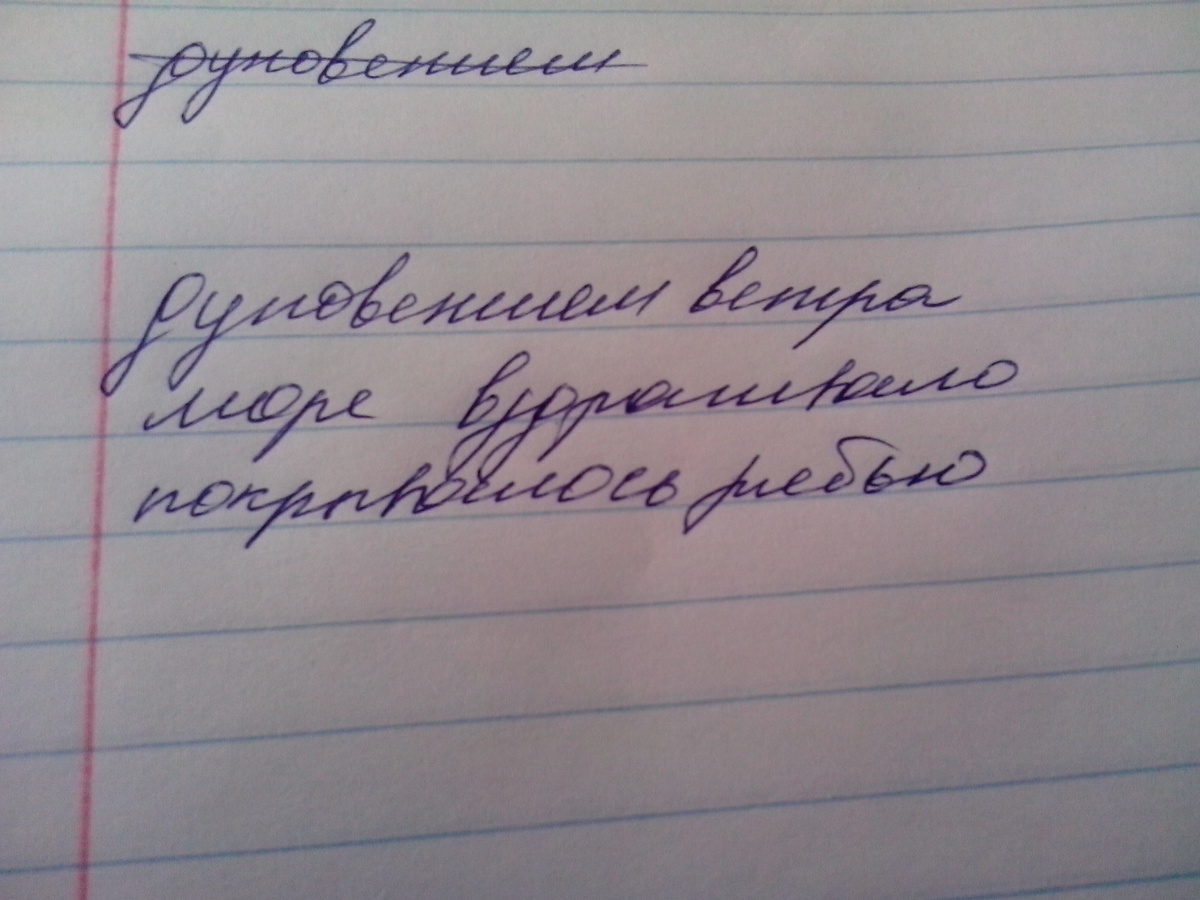 дуновением
дуновением ветра
море вздрагивало
покрывалось рябью